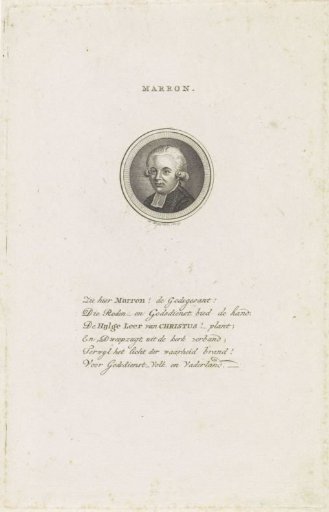 MARRON.
Zie hier Marron! de Godsgezant:
Die Reden- en Godsdienst bied de hand:
De Hylge Leer van CHRISTUS! plant;
En Dweepzugt, uit de kerk verband;
Terwyl het licht der waarheid brand!
Voor Godsdienst, Volk en Vaderland.